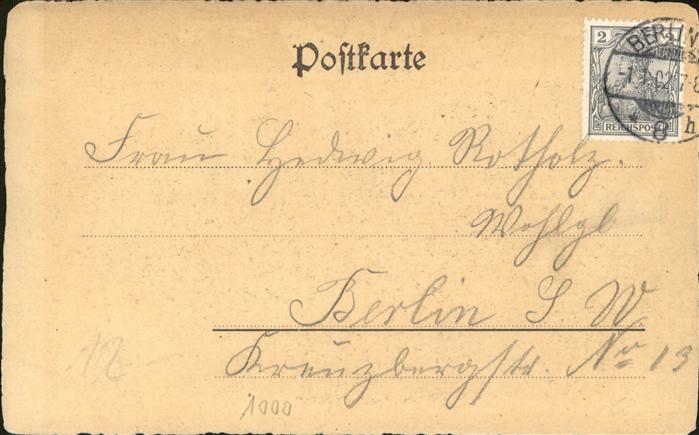 Postkarte
2 2
REICHSPOST
BERLIN
-1.1.02.7-8
8 h
Frau Hedwig Rotholz.
Wohlgb
Berlin S. W.
Kreuzbergstr. No 13
12
1000